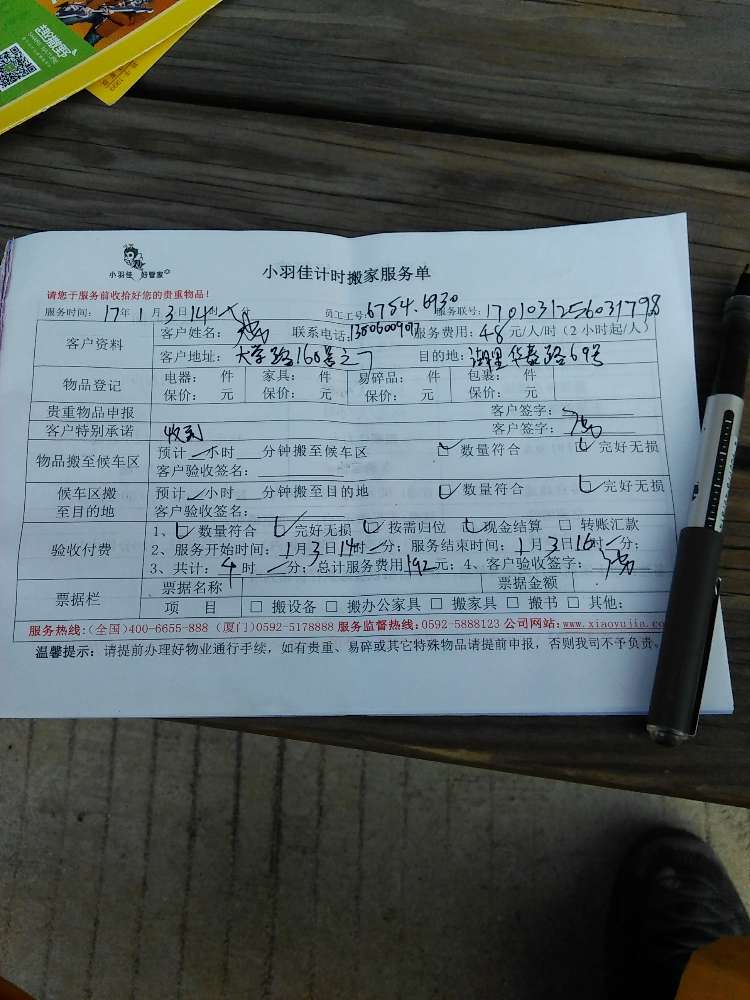 小羽佳 好管家
小羽佳计时搬家服务单
请您于服务前收拾好您的贵重物品！
服务时间：17年1月3日14时 分 员工工号：6754.6930 服务联号：1701031256031798
客户资料 客户姓名： 联系电话： 服务费用：48元/人/时（2小时起/人）
客户地址：大学路160号之一 目的地：湖里华泰路69号
物品登记 电器： 件 家具： 件 易碎品： 件 包裹： 件
保价： 元 保价： 元 保价： 元 保价： 元
贵重物品申报 客户签字：
客户特别承诺 收到 客户签字：
物品搬至候车区 预计 小时 分钟搬至候车区 ☑数量符合 ☑完好无损
客户验收签名：
候车区搬至目的地 预计 小时 分钟搬至目的地 ☑数量符合 ☑完好无损
客户验收签名：
验收付费 1、☑数量符合 ☑完好无损 ☑按需归位 ☑现金结算 □转账汇款
2、服务开始时间：1月3日14时 分；服务结束时间：1月3日16时 分；
3、共计：4时 分；总计服务费用192元；4、客户验收签字：
票据栏 票据名称 票据金额
项 目 □搬设备 □搬办公家具 □搬家具 □搬书 □其他：
服务热线：(全国)400-6655-888 (厦门)0592-5178888 服务监督热线：0592-5888123 公司网站：www.xiaoyujia.co
温馨提示：请提前办理好物业通行手续，如有贵重、易碎或其它特殊物品请提前申报，否则我司不予负责。